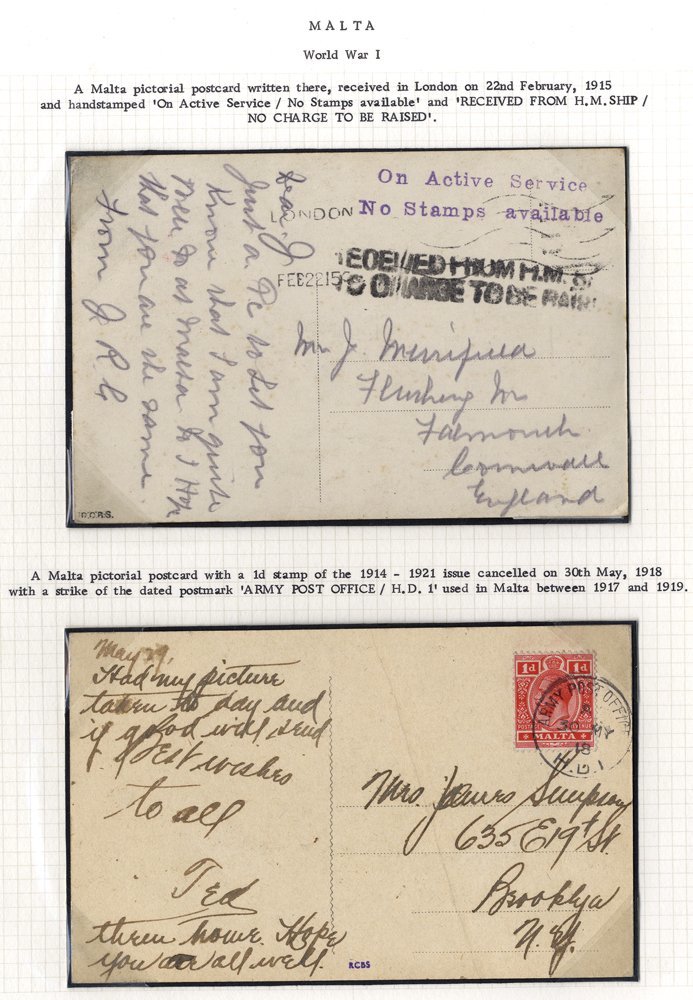 MALTA
World War I
A Malta pictorial postcard written there, received in London on 22nd February, 1915
and handstamped 'On Active Service / No Stamps available' and 'RECEIVED FROM H.M.SHIP /
NO CHARGE TO BE RAISED'.
On Active Service
No Stamps available
LONDON
FEB 22 15
ECEIVED FROM H.M. S
O CHARGE TO BE RAIS
Dear J
Just a Pc to let you
Know that I am quite
well as at Malta & I Hope
that you are the same
From J. R. C
J. Merrifield
Flushing
Falmouth
Cornwall
England
R.C.B.S.
A Malta pictorial postcard with a 1d stamp of the 1914 - 1921 issue cancelled on 30th May, 1918
with a strike of the dated postmark 'ARMY POST OFFICE / H.D. 1' used in Malta between 1917 and 1919.
May 29,
Had my picture
taken to day and
if good will send
Best wishes
to all
Ted
them home. Hope
you are all well.
RCBS
1d 1d
POSTAGE
MALTA
ARMY POST OFFICE
30 MY
18
H.D.1
Mrs. James Simpson
635 E 19th St.
Brooklyn
N.Y.